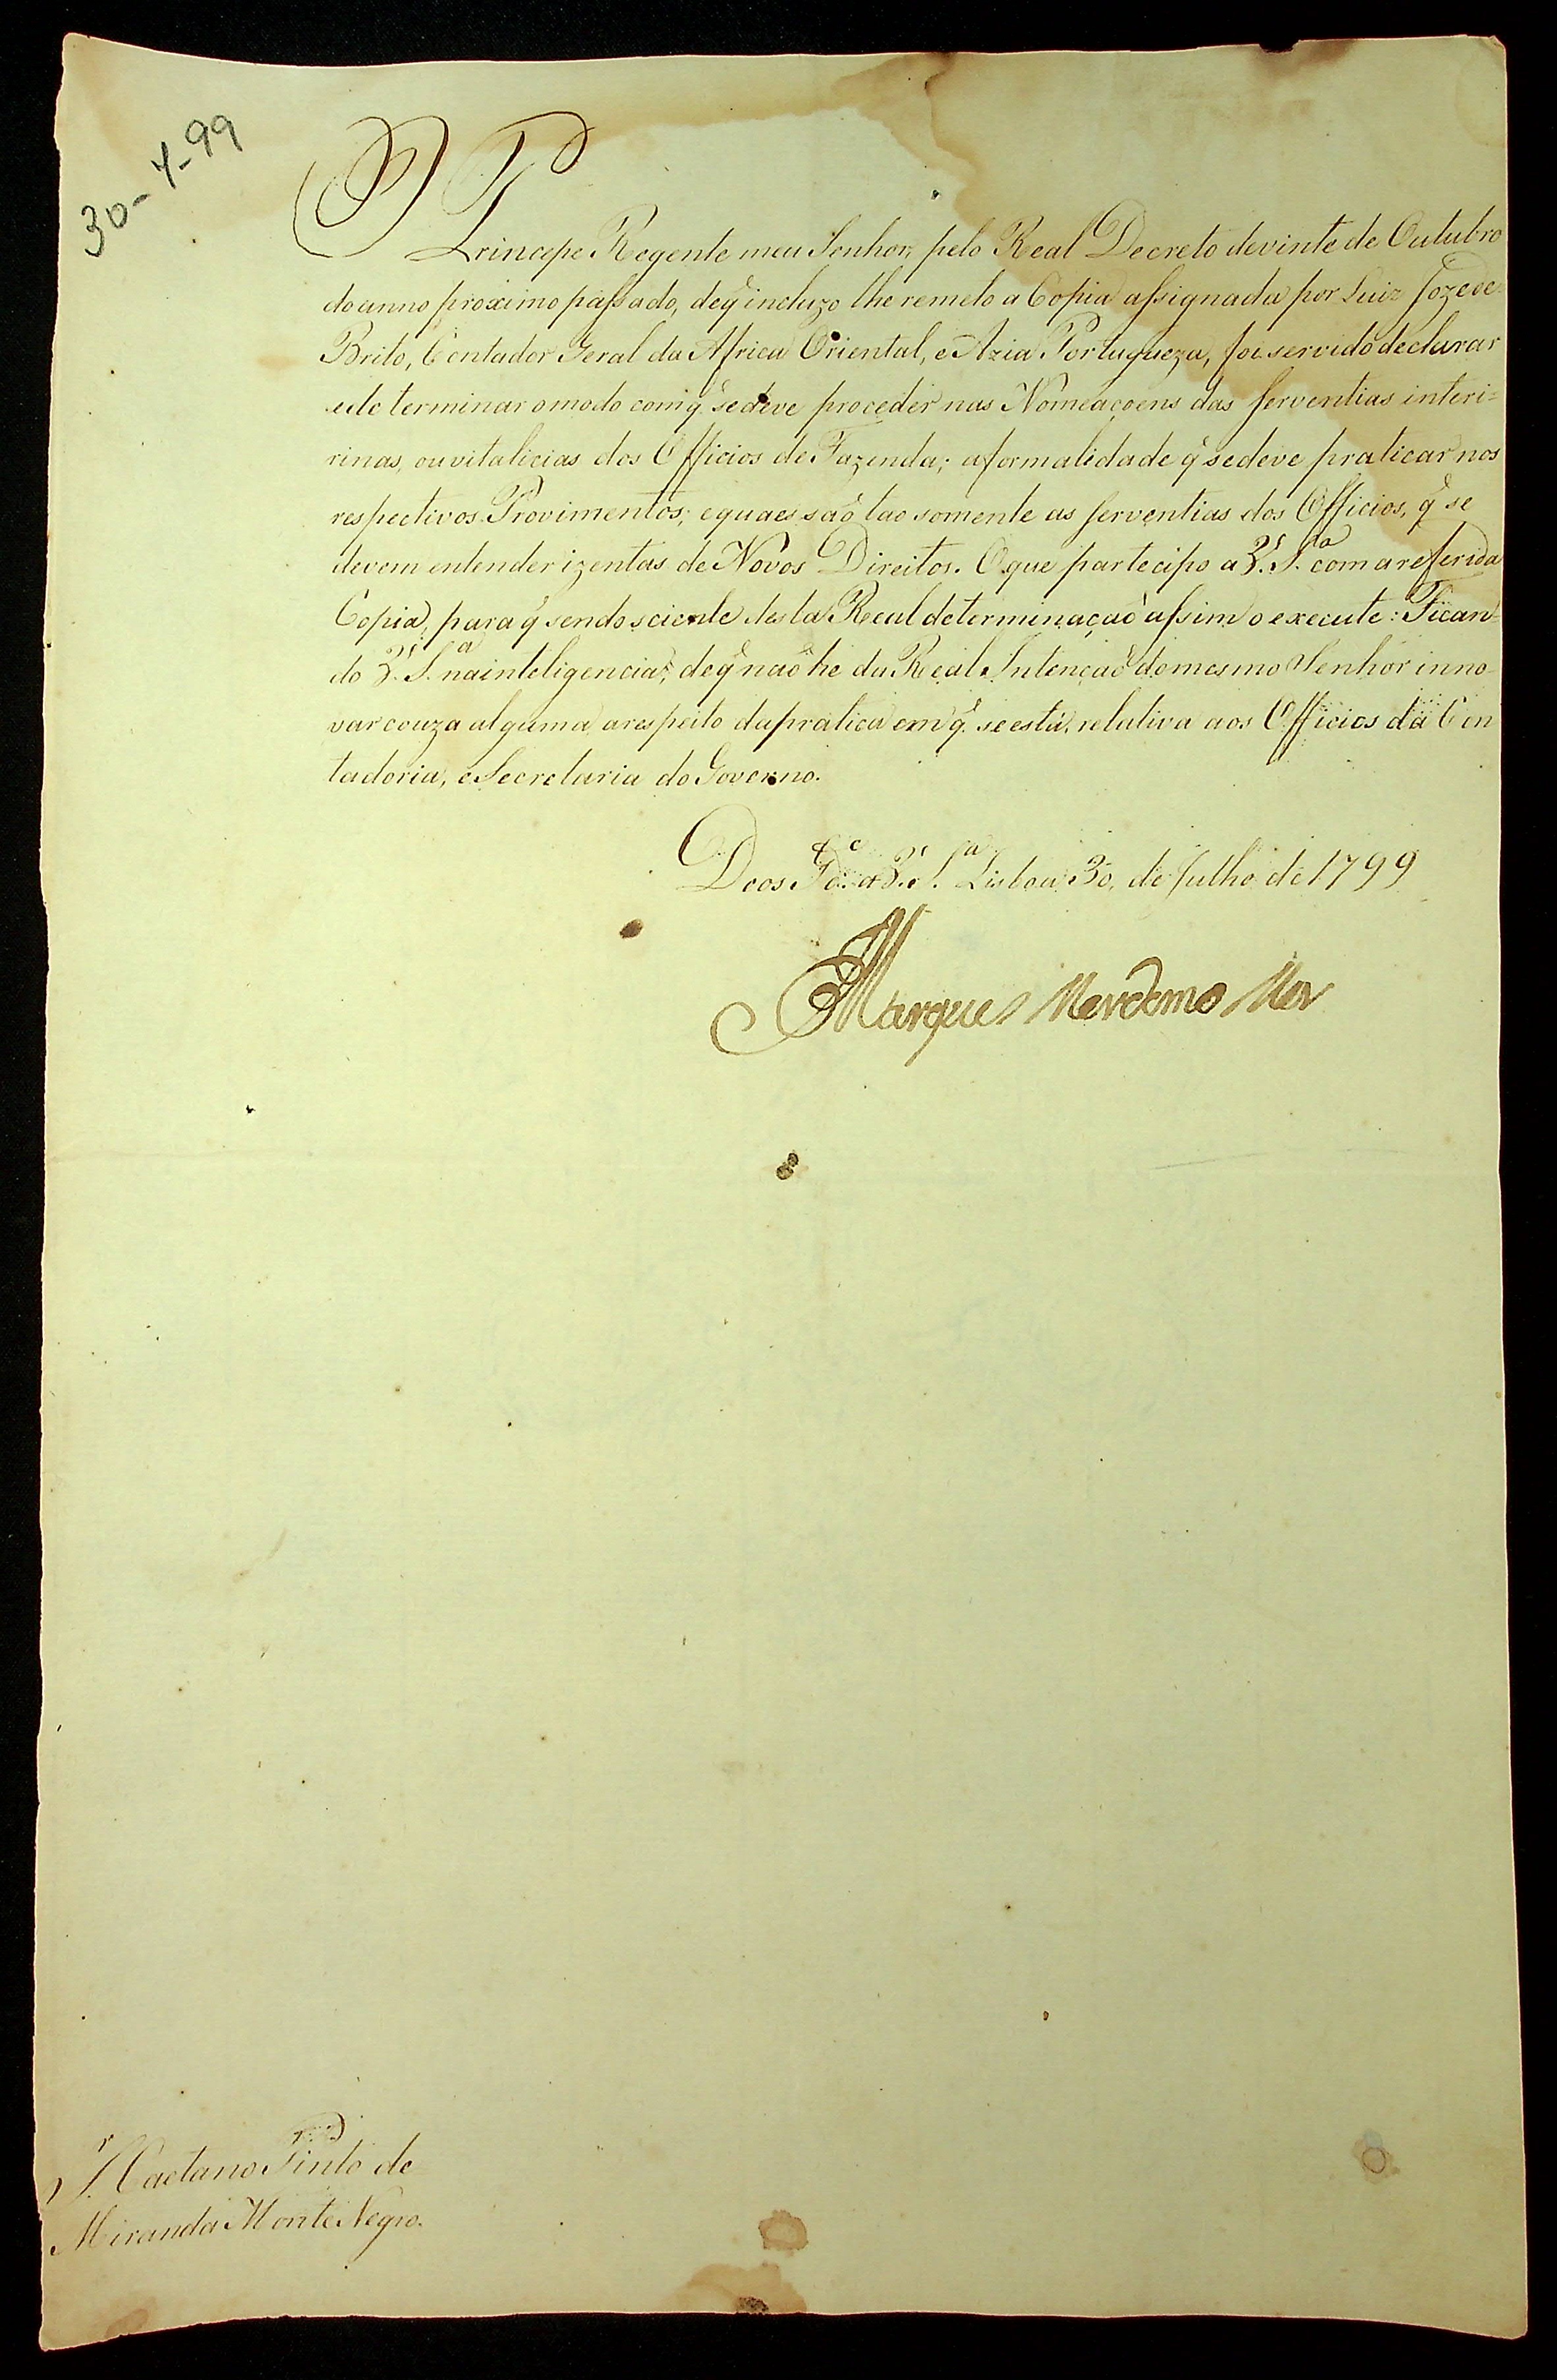 30-7-99
O Principe Regente meu Senhor, pelo Real Decreto de vinte de Outubro
do anno proximo passado, de q̃ incluzo lhe remeto a Copia assignada por Luiz Joze de
Brito, Contador Geral da Africa Oriental, e Azia Portugueza, foi servido declarar
e determinar o modo com q̃ se deve proceder nas Nomeaçoens das serventias interi=
rinas, ou vitalicias dos Officios de Fazenda; a formalidade q̃ se deve praticar nos
respectivos Provimentos; e quaes saõ tao somente as serventias dos Officios, q̃ se
devem entender izentas de Novos Direitos. O que partecipo a V. S.ª com a referida
Copia, para q̃ sendo sciente desta Real determinaçaõ assim o execute: Fican=
do V. S.ª na inteligencia, de q̃ naõ he da Real Intençaõ do mesmo Senhor inno
var couza alguma a respeito da pratica em q̃ se está, relativa aos Officios da Con
tadoria, e Secretaria do Governo.
Deos G.de a V. S.ª Lisboa 30, de Julho de 1799
Marques Mordomo Mor
S.r Caetano Pinto de
Miranda Monte Negro.